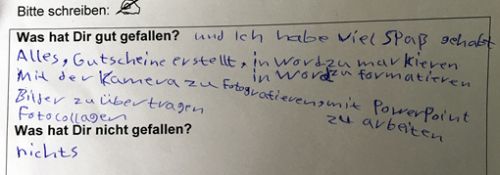 Bitte schreiben:
Was hat Dir gut gefallen? und Ich habe viel Spaß gehabt
Alles, Gutscheine erstellt, in Word zu markieren
Mit der Kamera zu Fotografieren, in Word zu formatieren
Bilder zu übertragen mit PowerPoint
Fotocollagen zu arbeiten
Was hat Dir nicht gefallen?
nichts